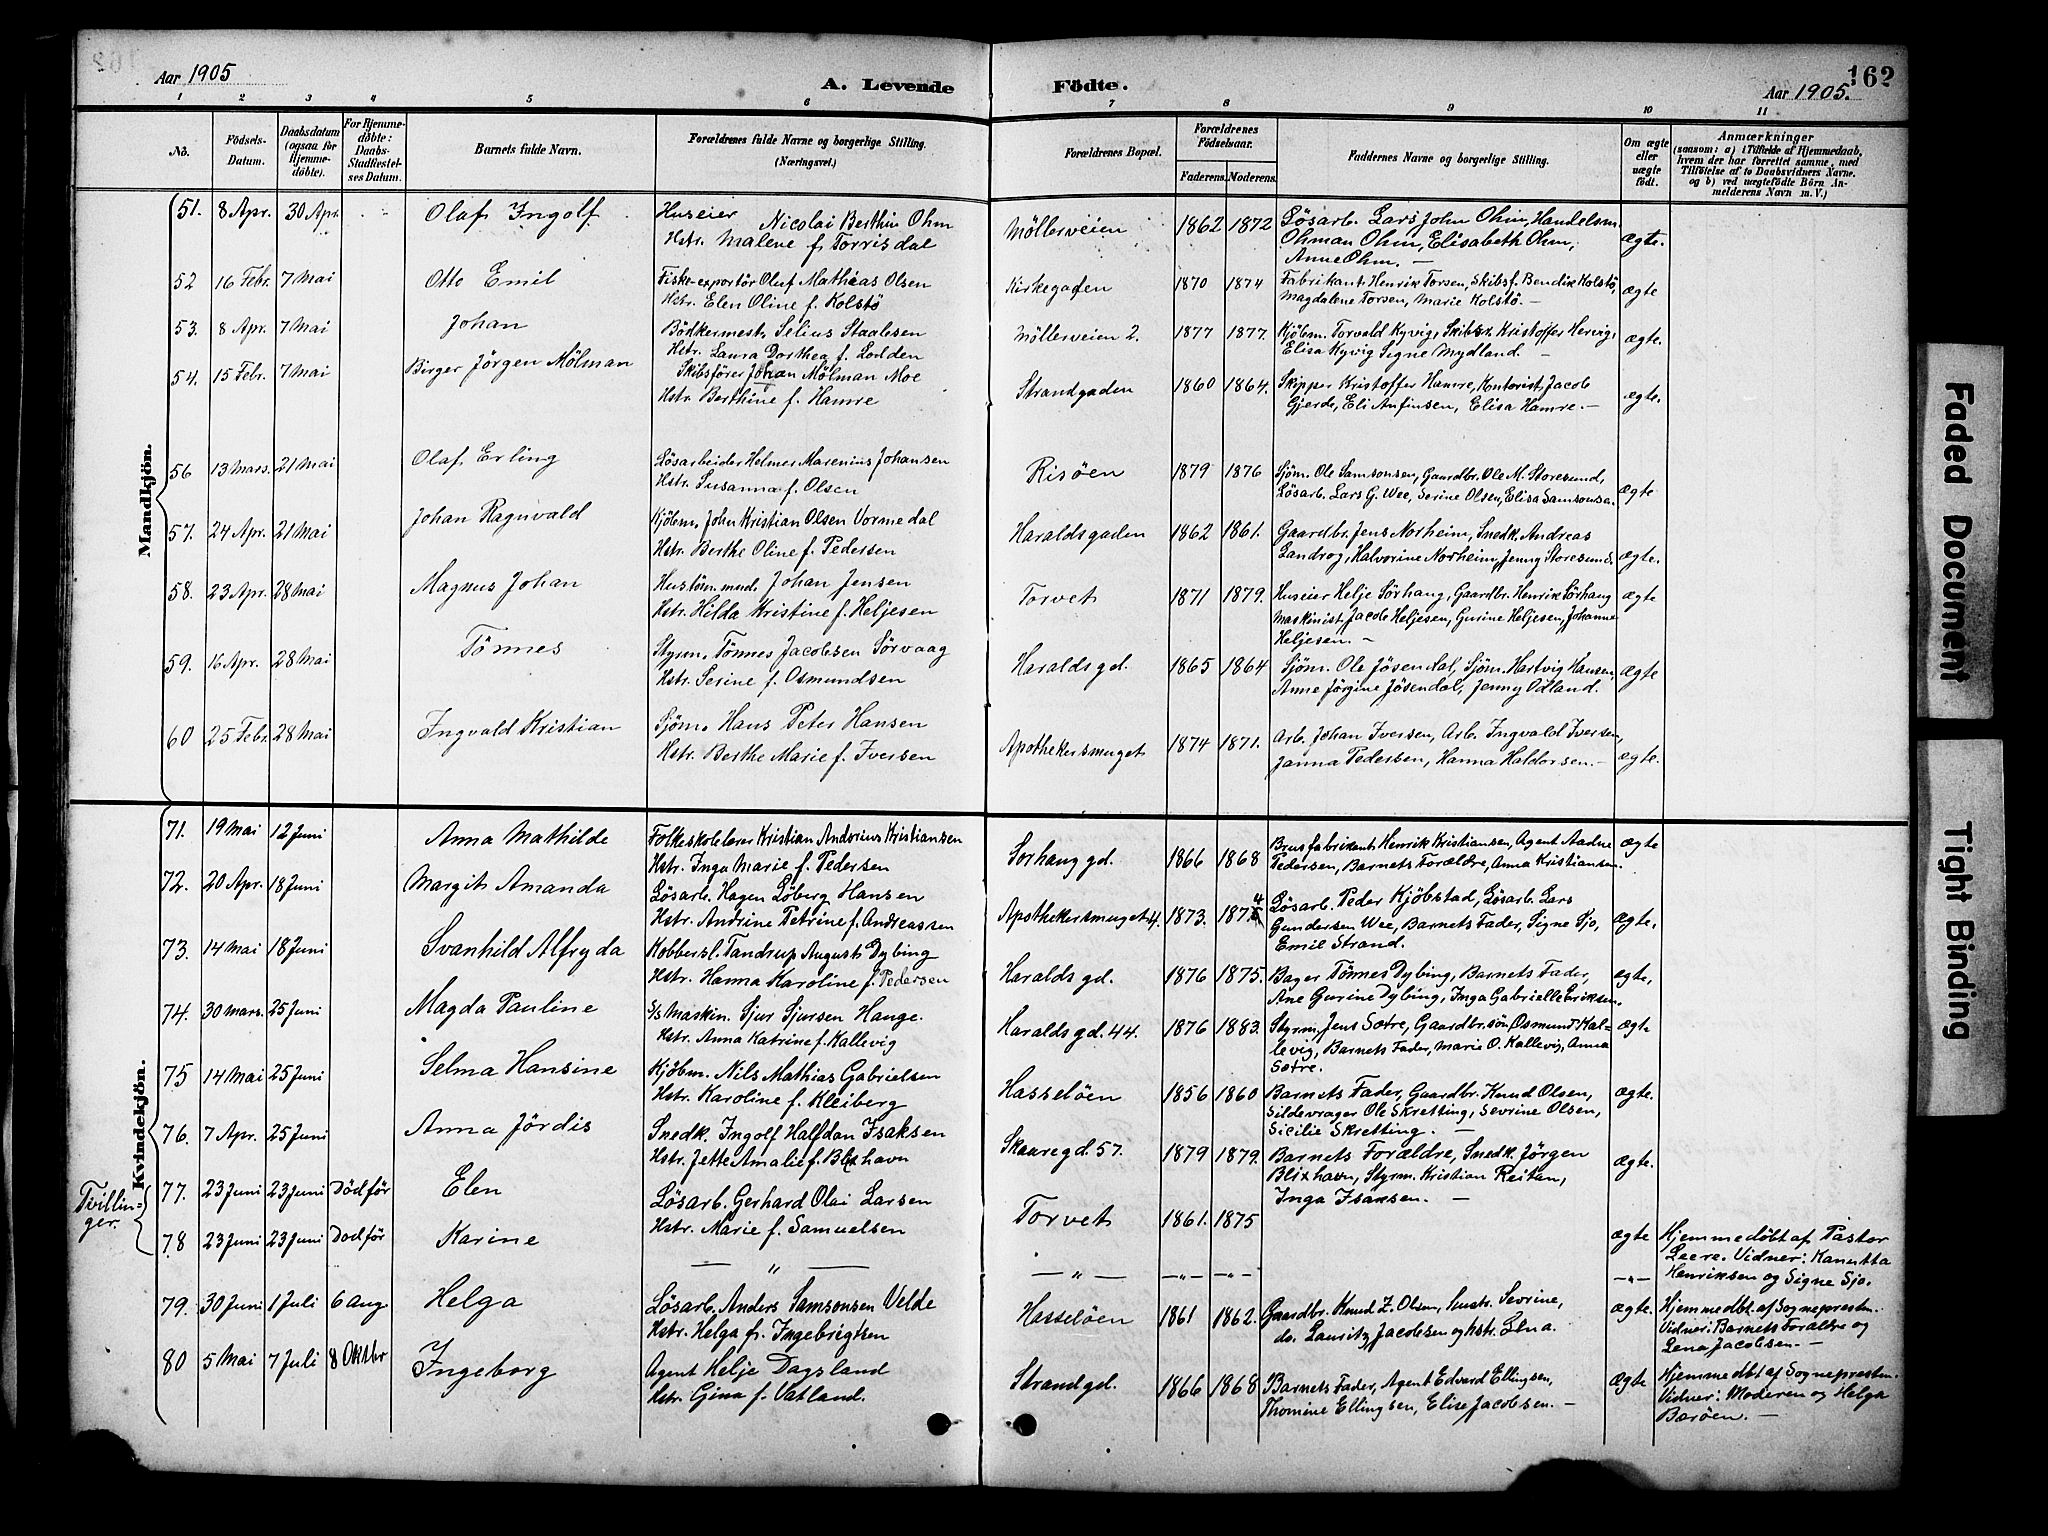 162
Aar 1905 A. Levende Födte. Aar 1905.
1 2 3 4 5 6 7 8 9 10 11
No. Födsels-Datum. Daabsdatum (ogsaa for Hjemme-döbte). For Hjemme-döbte: Daabs-Stadfæstelses Datum. Barnets fulde Navn. Forældrenes fulde Navne og borgerlige Stilling. (Næringsvei.) Forældrenes Bopæl. Forældrenes Födselsaar. Faderens. Moderens. Faddernes Navne og borgerlige Stilling. Om ægte eller uægte födt. Anmærkninger (saasom: a) i Tilfælde af Hjemmedaab, hvem der har forrettet samme, med Tilföielse af to Daabsvidners Navne. og b) ved uægtefödte Börn Anmelderens Navn m. V.)
Mandkjön.
51. 8 Apr. 30 Apr. Olaf Ingolf Huseier Nicolai Berthin Ohm Möllerveien 1862 1872 Lösarb. Lars John Ohm, Handelsm.
Hstr. Malene f. Torrisdal Ohman Ohm, Elisabeth Ohm, ægte.
Anne Ohm. —
52 16 Febr. 7 Mai Otto Emil Fiske-exportör Oluf Mathias Olsen Kirkegaden 1870 1874 Fabrikant Henrik Torsen, Skibsf. Bendik Kolstö,
Hstr. Elen Oline f. Kolstö Magdalene Torsen, Marie Kolstö. — ægte
53. 8 Apr. 7 Mai Johan Bödkermest. Selius Staalesen Möllerveien 2. 1877 1877. Kjöbm. Torvald Kyvig, Skibsr. Kristoffer Hervig,
Hstr. Laura Dorthea f. Lodden Elisa Kyvig Signe Mydland. — ægte.
54. 15 Febr. 7 Mai Birger Jörgen Mölman Skibsförer Johan Mölman Moe Strandgaden 1860 1864. Skipper Kristoffer Hamre, Kontorist Jacob
Hstr. Berthine f. Hamre Gjerde, Eli Anfinsen, Elisa Hamre. — ægte.
56 13 Mars. 21 Mai Olaf Erling Lösarbeider Helmer Marenius Johansen Risöen 1879 1876 Sjöm. Ole Samsonsen, Gaardbr. Ole M. Storesund,
Hstr. Susanna f. Olsen Lösarb. Lars G. Wee, Serine Olsen, Elisa Samsonsen. ægte
57. 24 Apr. 21 Mai Johan Ragnvald Kjöbm. John Kristian Olsen Vormedal Haraldsgaden 1862 1861. Gaardbr. Jens Norheim, Snedk. Andreas
Hstr. Berthe Oline f. Pedersen Sandrog, Halvorine Norheim, Jenny Storesund. ægte.
58. 23 Apr. 28 Mai Magnus Johan Hustömmerm. Johan Jensen Torvet 1871 1879. Huseier Helje Sörhaug, Gaardbr. Henrik Sörhaug ægte
Hstr. Hilda Kristine f. Heljesen Maskinist Jacob Heljesen, Gurine Heljesen, Johanne
Heljesen. —
59. 16 Apr. 28 Mai Tönnes Styrm. Tönnes Jacobsen Sörvaag Haraldsgd. 1865 1864 Sjöm. Ole Jösendal, Sjöm. Hartvig Hansen,
Hstr. Serine f. Osmundsen Anne Jörgine Jösendal, Jenny Ödland. ægte
60 25 Febr. 28 Mai Ingvald Kristian Sjöm. Hans Peter Hansen Apothekersmuget 1874 1871. Arb. Johan Iversen, Arb. Ingvald Iversen,
Hstr. Berthe Marie f. Iversen Janna Pedersen, Hanna Haldorsen. — ægte.
Kvindekjön.
71. 19 Mai 12 Juni Anna Mathilde Folkeskolelærer Kristian Andorius Kristiansen Sorhauggd. 1866 1868 Brusfabrikant Henrik Kristiansen, Agent Aadne
Hstr. Inga Marie f. Pedersen Pedersen, Barnets Forældre, Anna Kristiansen. ægte
72. 20 Apr. 18 Juni Margit Amanda Lösarb. Hagen Löberg Hansen Apothekersmuget 4. 1873. 1874 Lösarb. Peder Kjöbstad, Lösarb. Lars
Hstr. Andrine Petrine f. Andreassen Gundersen Wee, Barnets Fader, Signe Sjo, ægte.
Emil Strand.
73. 14 Mai 18 Juni Svanhild Alfryda Kobbersl. Tandrup August Dybing Haraldsgd. 1876 1875. Bager Tönnes Dybing, Barnets Fader, ægte,
Hstr. Hanna Karoline f. Pedersen Ane Gurine Dybing, Inga Gabrielle Eriksen.
74. 30 Mars. 25 Juni Magda Pauline S/s Maskin. Sjur Sjursen Hauge. Haraldsgd. 44. 1876 1883. Styrm. Jens Sætre, Gaardbr.sön Osmund Kal- ægte
Hstr. Anna Katrine f. Kallevig levig, Barnets Fader, Marie O. Kallevig, Anna
Sætre.
75 14 Mai 25 Juni Selma Hansine Kjöbm. Nils Mathias Gabrielsen Hasselöen 1856 1860 Barnets Fader, Gaardbr. Knud Olsen, ægte.
Hstr. Karoline f. Kleiberg Sildevrager Ole Skretting, Sevrine Olsen,
Sicilie Skretting. —
76. 7 Apr. 25 Juni Anna Jördis Snedk. Ingolf Halfdan Isaksen Skauregd. 57. 1879 1879. Barnets Forældre, Snedk. Jörgen
Hstr. Jette Amalie f. Blixhavn Blixhavn, Styrm. Kristian Reitan, ægte.
Inga Isaksen. —
Tvillin=ger.
77. 23 Juni 23 Juni Död för Elen Lösarb. Gerhard Olai Larsen Torvet 1861. 1875
Hstr. Marie f. Samuelsen ægte Hjemmedöbt af Pastor
78 23 Juni 23 Juni Död för Karine — „ — — „ — — „ — — „ — — „ — Leere. Vidner: Kanutta
Henriksen og Signe Sjo.
79. 30 Juni 1 Juli 6 Aug. Helga Lösarb. Anders Samsonsen Velde Hasselöen 1861 1862. Gaardbr. Knud Z. Olsen, Hustr. Sevrine, ægte. Hjemmedbt. af Sognepresten.
Hstr. Helga f. Ingebrigtsen do. Lauritz Jacobsen og hstr. Lena. Vidner: Barnets Forældre og
Lena Jacobsen. —
80 5 Mai 7 Juli 8 Oktbr Ingeborg Agent Helje Dagsland Strandgd. 1866 1868 Barnets Fader, Agent Edvard Ellingsen, ægte Hjemmedbt af Sognepresten.
Hstr. Gina f. Vatland. Thomine Ellingsen, Elise Jacobsen. — Vidner: Moderen og Helga
Baröen. —
Faded Document
Tight Binding